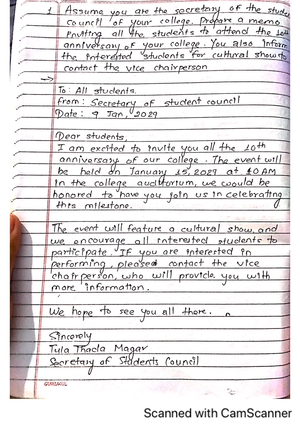 1 Assume you are the secretary of the stude
council of your college. Prepare a memo
inviting all the students to attend the 10th
anniversary of your college. You also inform
the interested students for cultural show to
contact the vice chairperson
→
To: All students.
From: Secretary of student council
Date: 9 Jan, 2029
Dear students,
I am excited to invite you all the 10th
anniversary of our college. The event will
be held on January 15, 2029 at 10 AM
in the college auditorium, we would be
honored to have you join us in celebrating
this milestone.
The event will feature a cultural show, and
we encourage all interested students to
participate. If you are interested in
performing, please contact the vice
chairperson, who will provide you with
more information.
We hope to see you all there.
Sincerely
Tula Thada Magar
Secretary of Students Council
Scanned with CamScanner